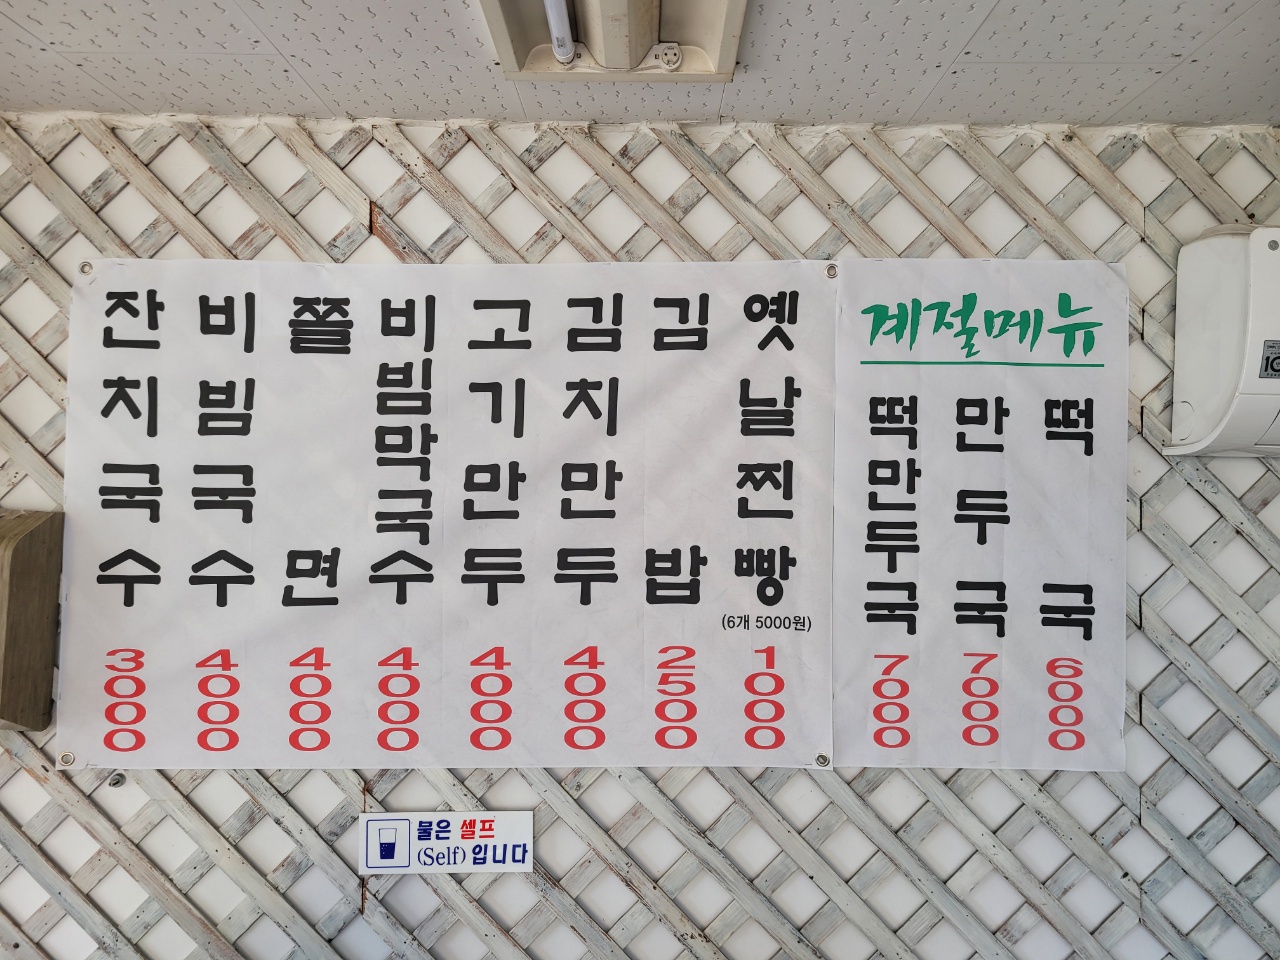 잔치국수 3000
비빔국수 4000
쫄면 4000
비빔막국수 4000
고기만두 4000
김치만두 4000
김밥 2500
옛날찐빵 (6개 5000원) 1000
계절메뉴
떡만두국 7000
만두국 7000
떡국 6000
물은 셀프
(Self) 입니다